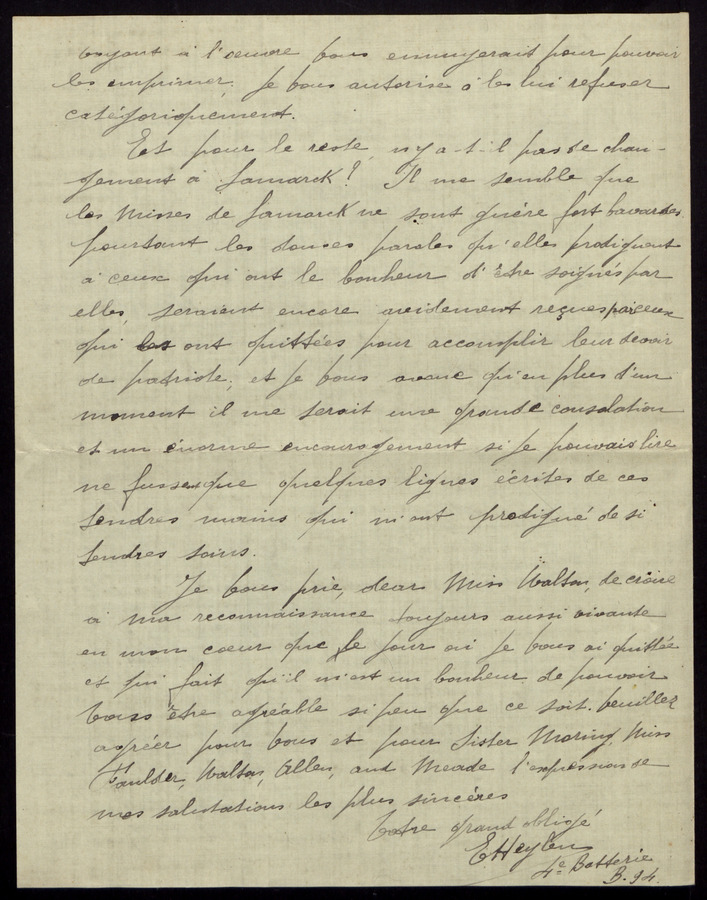 voyant à l'œuvre vous ennuyerait pour pouvoir
les imprimer, je vous autorise à les lui refuser
catégoriquement.
Et pour le reste, n'y a-t-il pas de chan-
gement à Lamarck? Il me semble que
les Misses de Lamarck ne sont guére fort bavardes
pourtant les douces paroles qu'elles prodiguent
à ceux qui ont le bonheur d'être soignés par
elles, seraient encore avidement reçues par ceux
qui les ont quittées pour accomplir leur devoir
de patriote, et je vous avoue qu'en plus d'un
moment il me serait une grande consolation
et un énorme encouragement si je pouvais lire
ne fussent que quelques lignes écrites de ces
tendres mains qui m'ont prodigué de si
tendres soins.
Je vous prie, dear Miss Walton, de croire
à ma reconnaissance toujours aussi vivante
en mon cœur que le jour où je vous ai quittée
et qui fait qu'il m'est un bonheur de pouvoir
vous être agréable si peu que ce soit. Veuillez
agréer pour vous et pour Sister Moring, Miss
Faulder, Walton, Allen, and Meade l'expression de
mes salutations les plus sincères
Votre grand obligé
E Heylen
4e Batterie
B. 94.